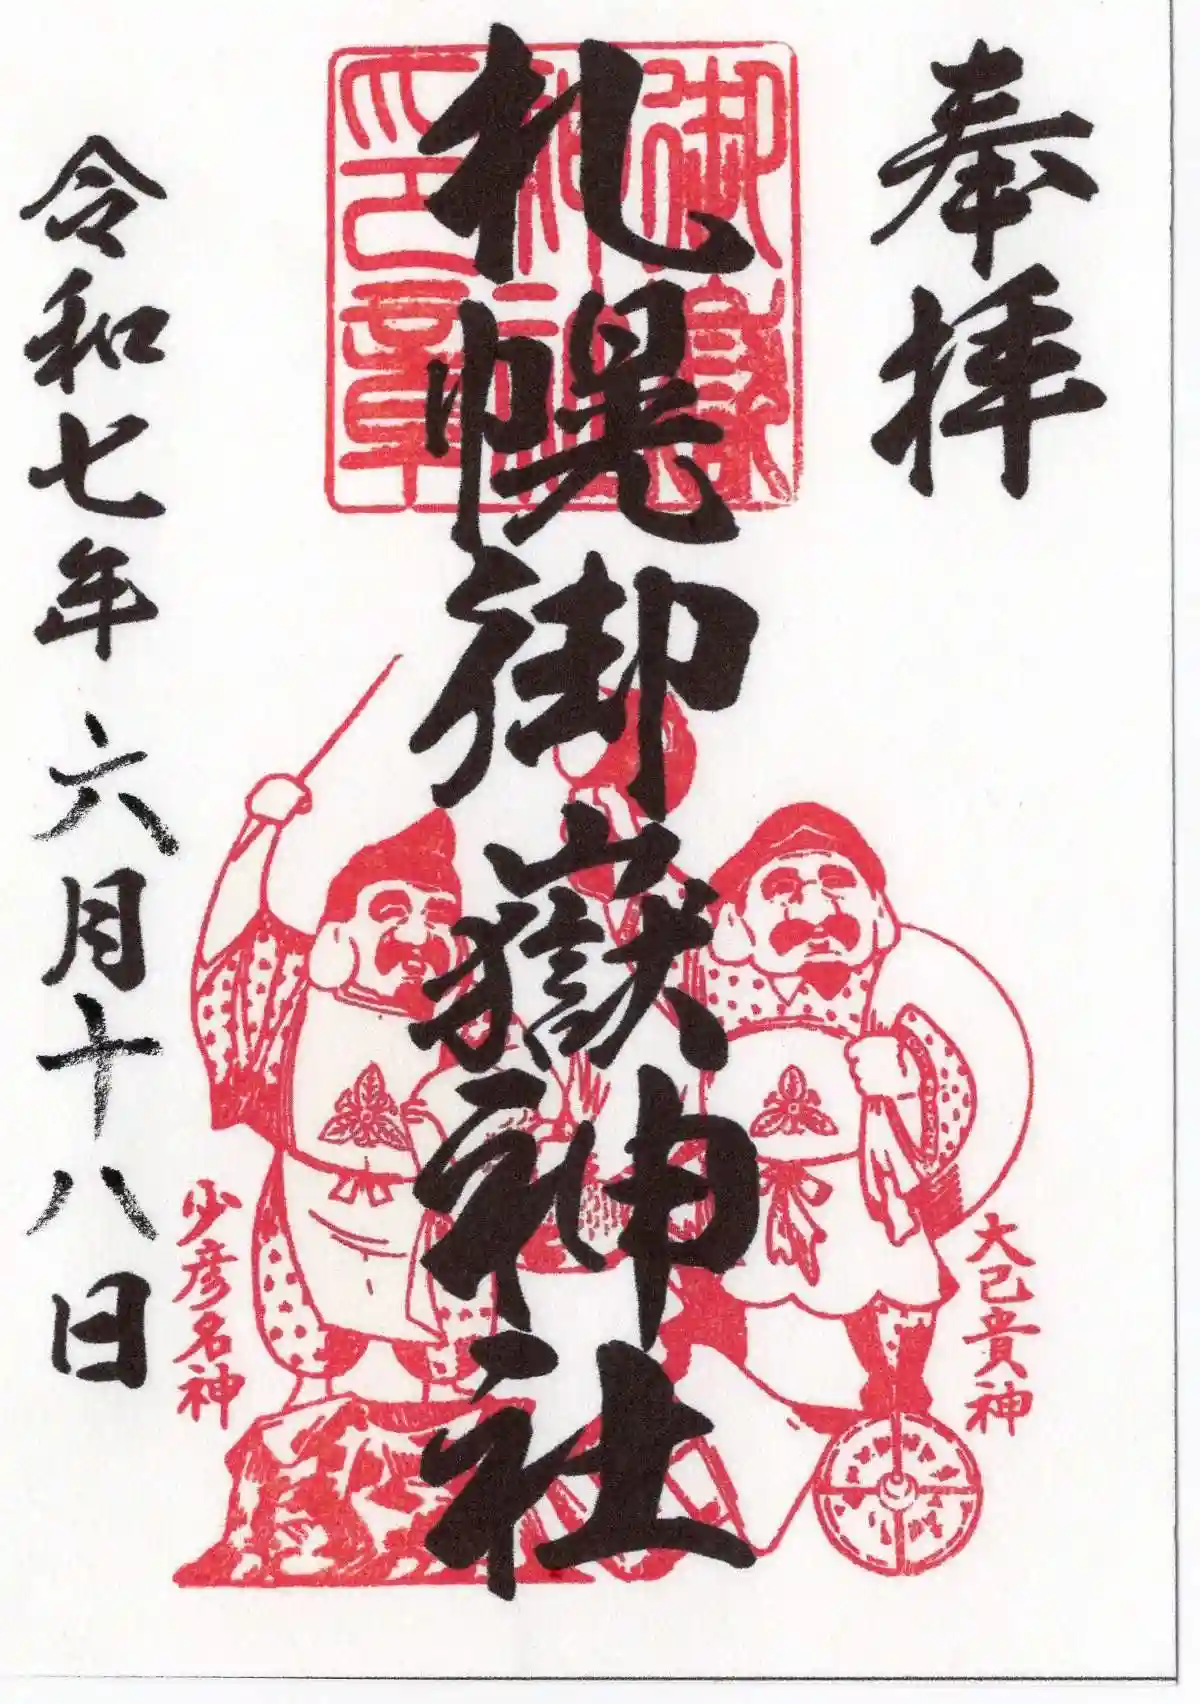 奉拝
札幌御嶽神社
御嶽
神社
印章
令和七年六月十八日
大己貴神
少彦名神